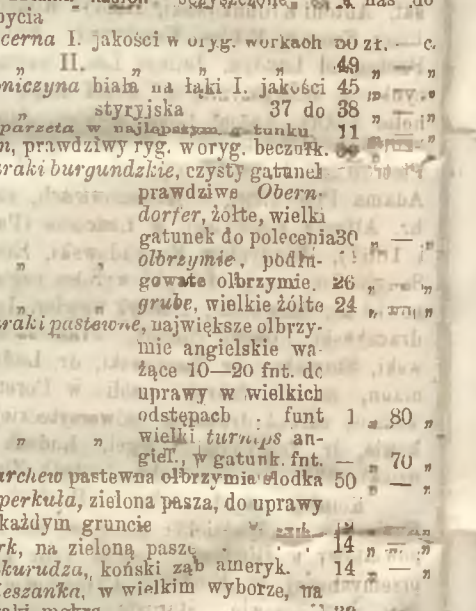 nas do
bycia
cerna I. jakości w oryg. workach 50 zł. — c.
„ II. „ „ „ 49 „ „
niczyna biała na łąki I. jakości 45 „ — „
„ styryjska 37 do 38 „ — „
parzeta w najlepszym gatunku 11 „ — „
n, prawdziwy ryg. w oryg. beczułk.
raki burgundzkie, czysty gatunek
prawdziwe Obern-
dorfer, żółte, wielki
gatunek do polecenia 30 „ — „
„ „ olbrzymie, podłu-
gowate olbrzymie. 26 „ „
„ „ grube, wielkie żółte 24 „ — „
raki pastewne, największe olbrzy-
mie angielskie wa-
żące 10—20 fnt. do
uprawy w wielkich
odstępach . funt 1 „ 80 „
„ „ wielki turnips an-
giel., w gatunk. fnt. — „ 70 „
archew pastewna olbrzymia słodka 50 „ — „
perkuła, zielona pasza, do uprawy
każdym gruncie
rk, na zieloną paszę . . . 14 „ — „
kurudza, koński ząb ameryk. 14 „ — „
ieszanka, w wielkim wyborze, na